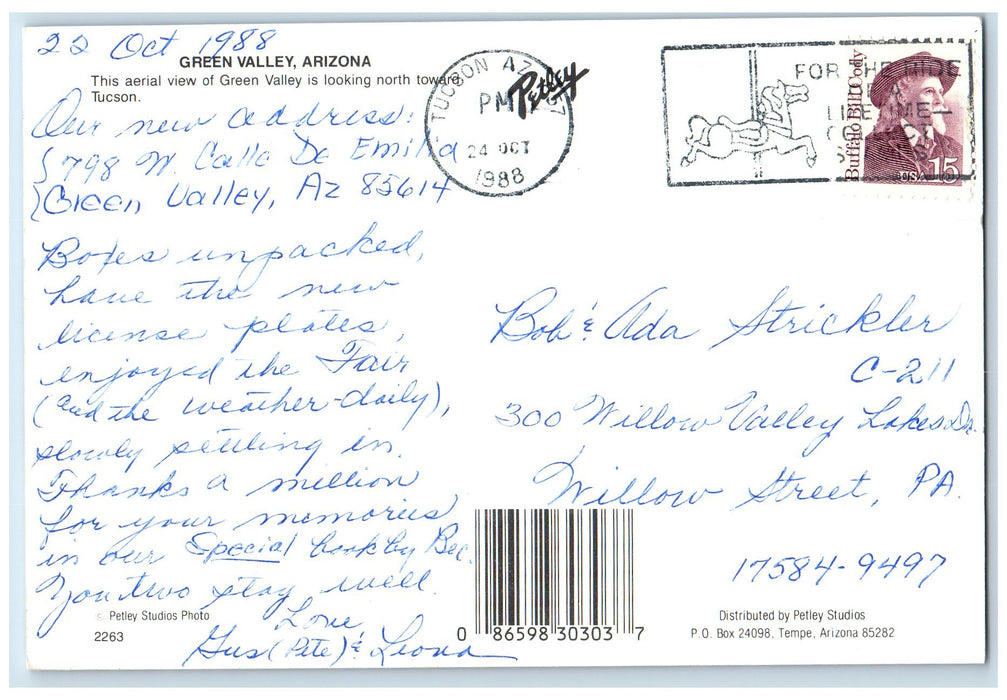 22 Oct 1988
GREEN VALLEY, ARIZONA
This aerial view of Green Valley is looking north toward
Tucson.
Our new address:
798 W. Calle De Emilia
Green Valley, Az 85614
Boxes unpacked,
have the new
license plates,
enjoyed the Fair
(and the weather-daily),
slowly settling in.
Thanks a million
for your memories
in our Special book by Bec.
You two stay well.
Love
Gus (Pete) & Leona
© Petley Studios Photo
2263
TUCSON AZ 857
PM
24 OCT
1988
Petley
FOR THE RIDE
LIFETIME—
Buffalo Bill Cody
USA 15
Bob & Ada Strickler
C-211
300 Willow Valley Lakes Dr.
Willow Street, PA.
17584-9497
0 86598 30303 7
Distributed by Petley Studios
P.O. Box 24098, Tempe, Arizona 85282